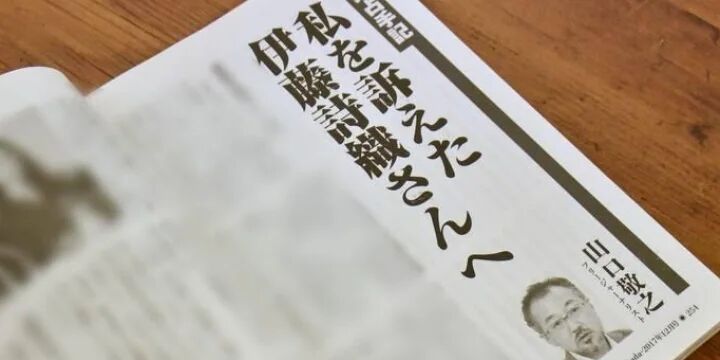 私を訴えた
伊藤詩織さんへ
山口敬之
フリージャーナリスト
2017年12月号 ● 254